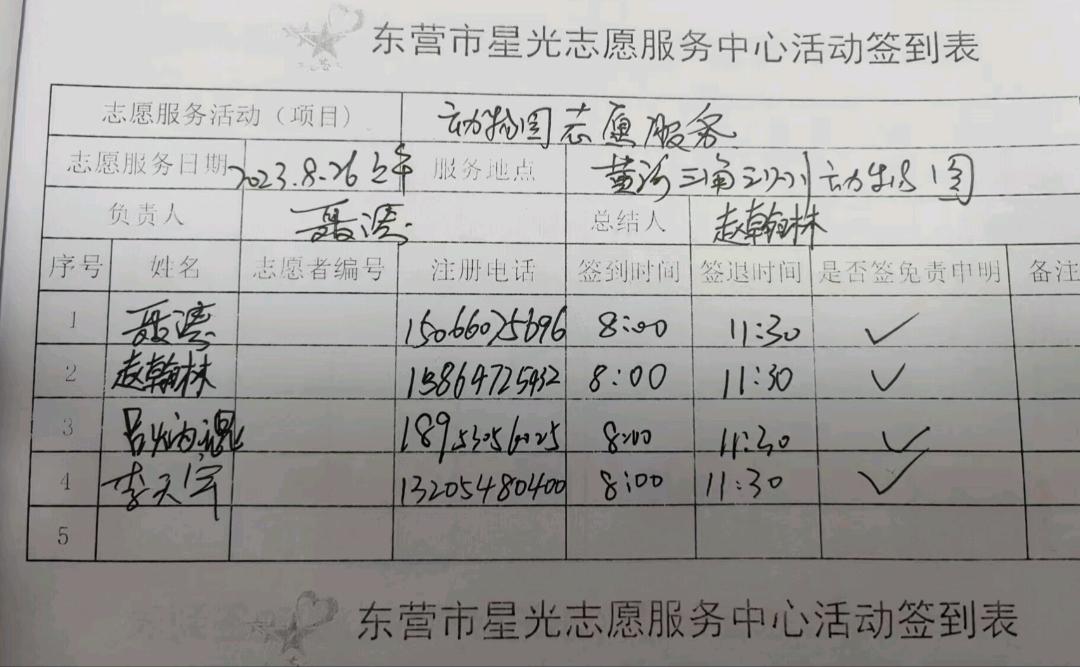 东营市星光志愿服务中心活动签到表
志愿服务活动（项目） 动物园志愿服务
志愿服务日期 2023.8.26上午 服务地点 黄河三角洲动物园
负责人 聂涛 总结人 赵翰林
序号 姓名 志愿者编号 注册电话 签到时间 签退时间 是否签免责申明 备注
1 聂涛 15066025696 8:00 11:30 ✓
2 赵翰林 15864725432 8:00 11:30 ✓
3 吕炳 18953056025 8:00 11:30 ✓
4 李天宇 13205480400 8:00 11:30 ✓
5
东营市星光志愿服务中心活动签到表